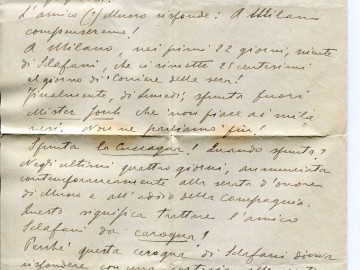 L'amico (?) Musco risponde: A Milano
compenseremo!
A Milano, nei primi 22 giorni, niente
di Sclafani, che ci rimette 25 centesimi
al giorno di "Corriere della sera".
Finalmente, di lunedì, spunta fuori
Mister Jonk che non piace ai mila
nesi. Non ne parliamo più!
Spunta la Caccagna! Quando spunta?
Negli ultimi quattro giorni, annunciata
contemporaneamente alla serata d'onore
di Musco e all'addio della Compagnia.
Questo significa trattare l'amico
Sclafani da carogna!
Perché questa carogna di Sclafani doveva
rispondere con una